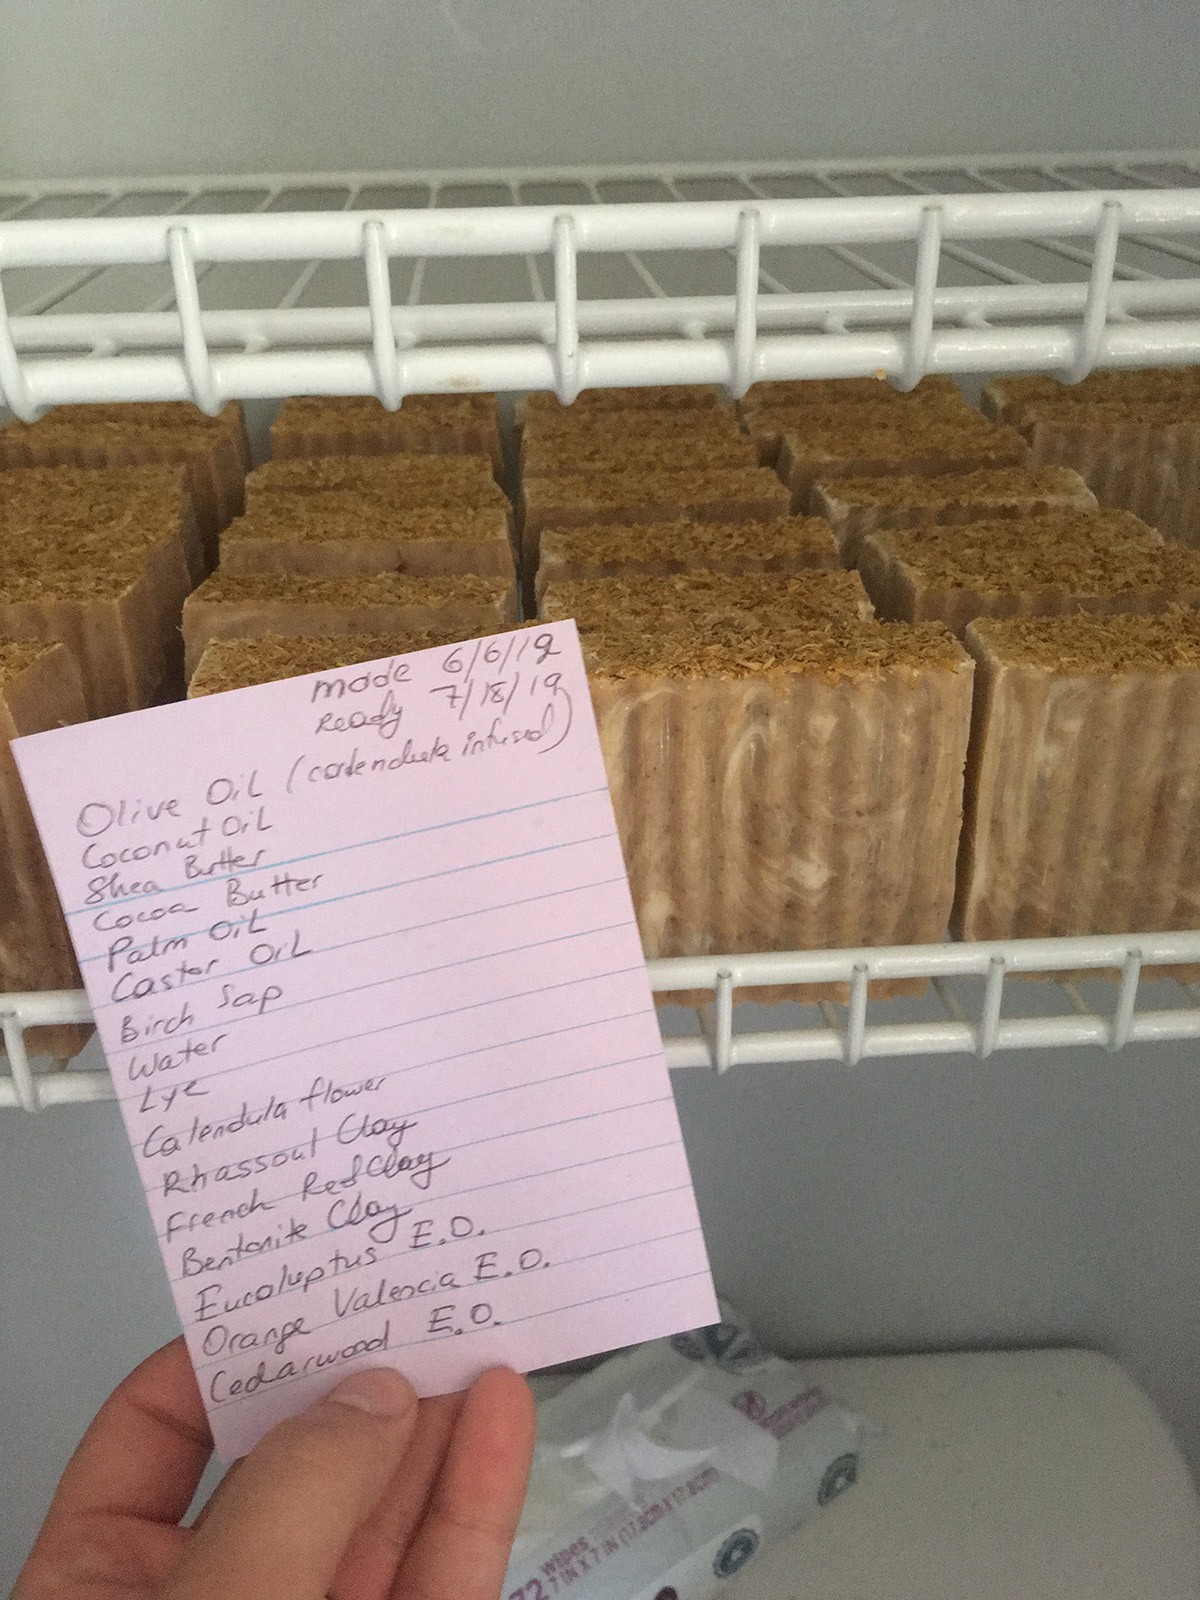 made 6/6/19
ready 7/18/19
Olive Oil (calendula infused)
Coconut Oil
Shea Butter
Cocoa Butter
Palm Oil
Castor Oil
Birch Sap
Water
Lye
Calendula flower
Rhassoul Clay
French Red Clay
Bentonite Clay
Eucaluptus E.O.
Orange Valencia E.O.
Cedarwood E.O.
72 wipes
7 IN X 7 IN (17.8CM X 17.8CM)